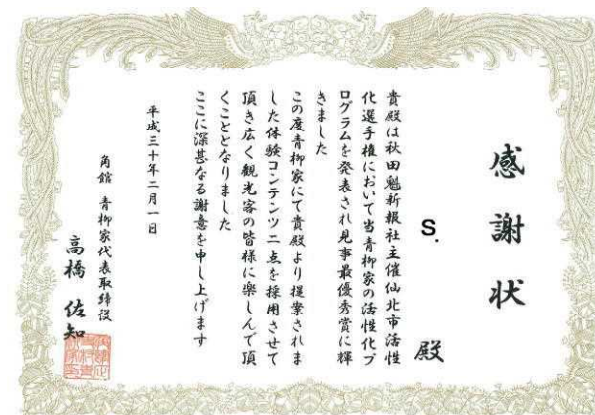 感謝状
S. 殿
貴殿は秋田魁新報社主催仙北市活性
化選手権において当青柳家の活性化プ
ログラムを発表され見事最優秀賞に輝
きました
この度青柳家にて貴殿より提案されま
した体験コンテンツ二点を採用させて
頂き広く観光客の皆様に楽しんで頂
くこととなりました
ここに深甚なる謝意を申し上げます
平成三十年二月一日
角館 青柳家代表取締役
高橋佐知